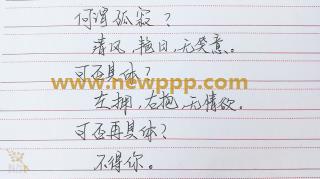 何谓孤寂？
清风，艳日，无笑意。
可否具体？
www.newppp.com
左拥，右抱，无情欲。
可否再具体？
不得你。